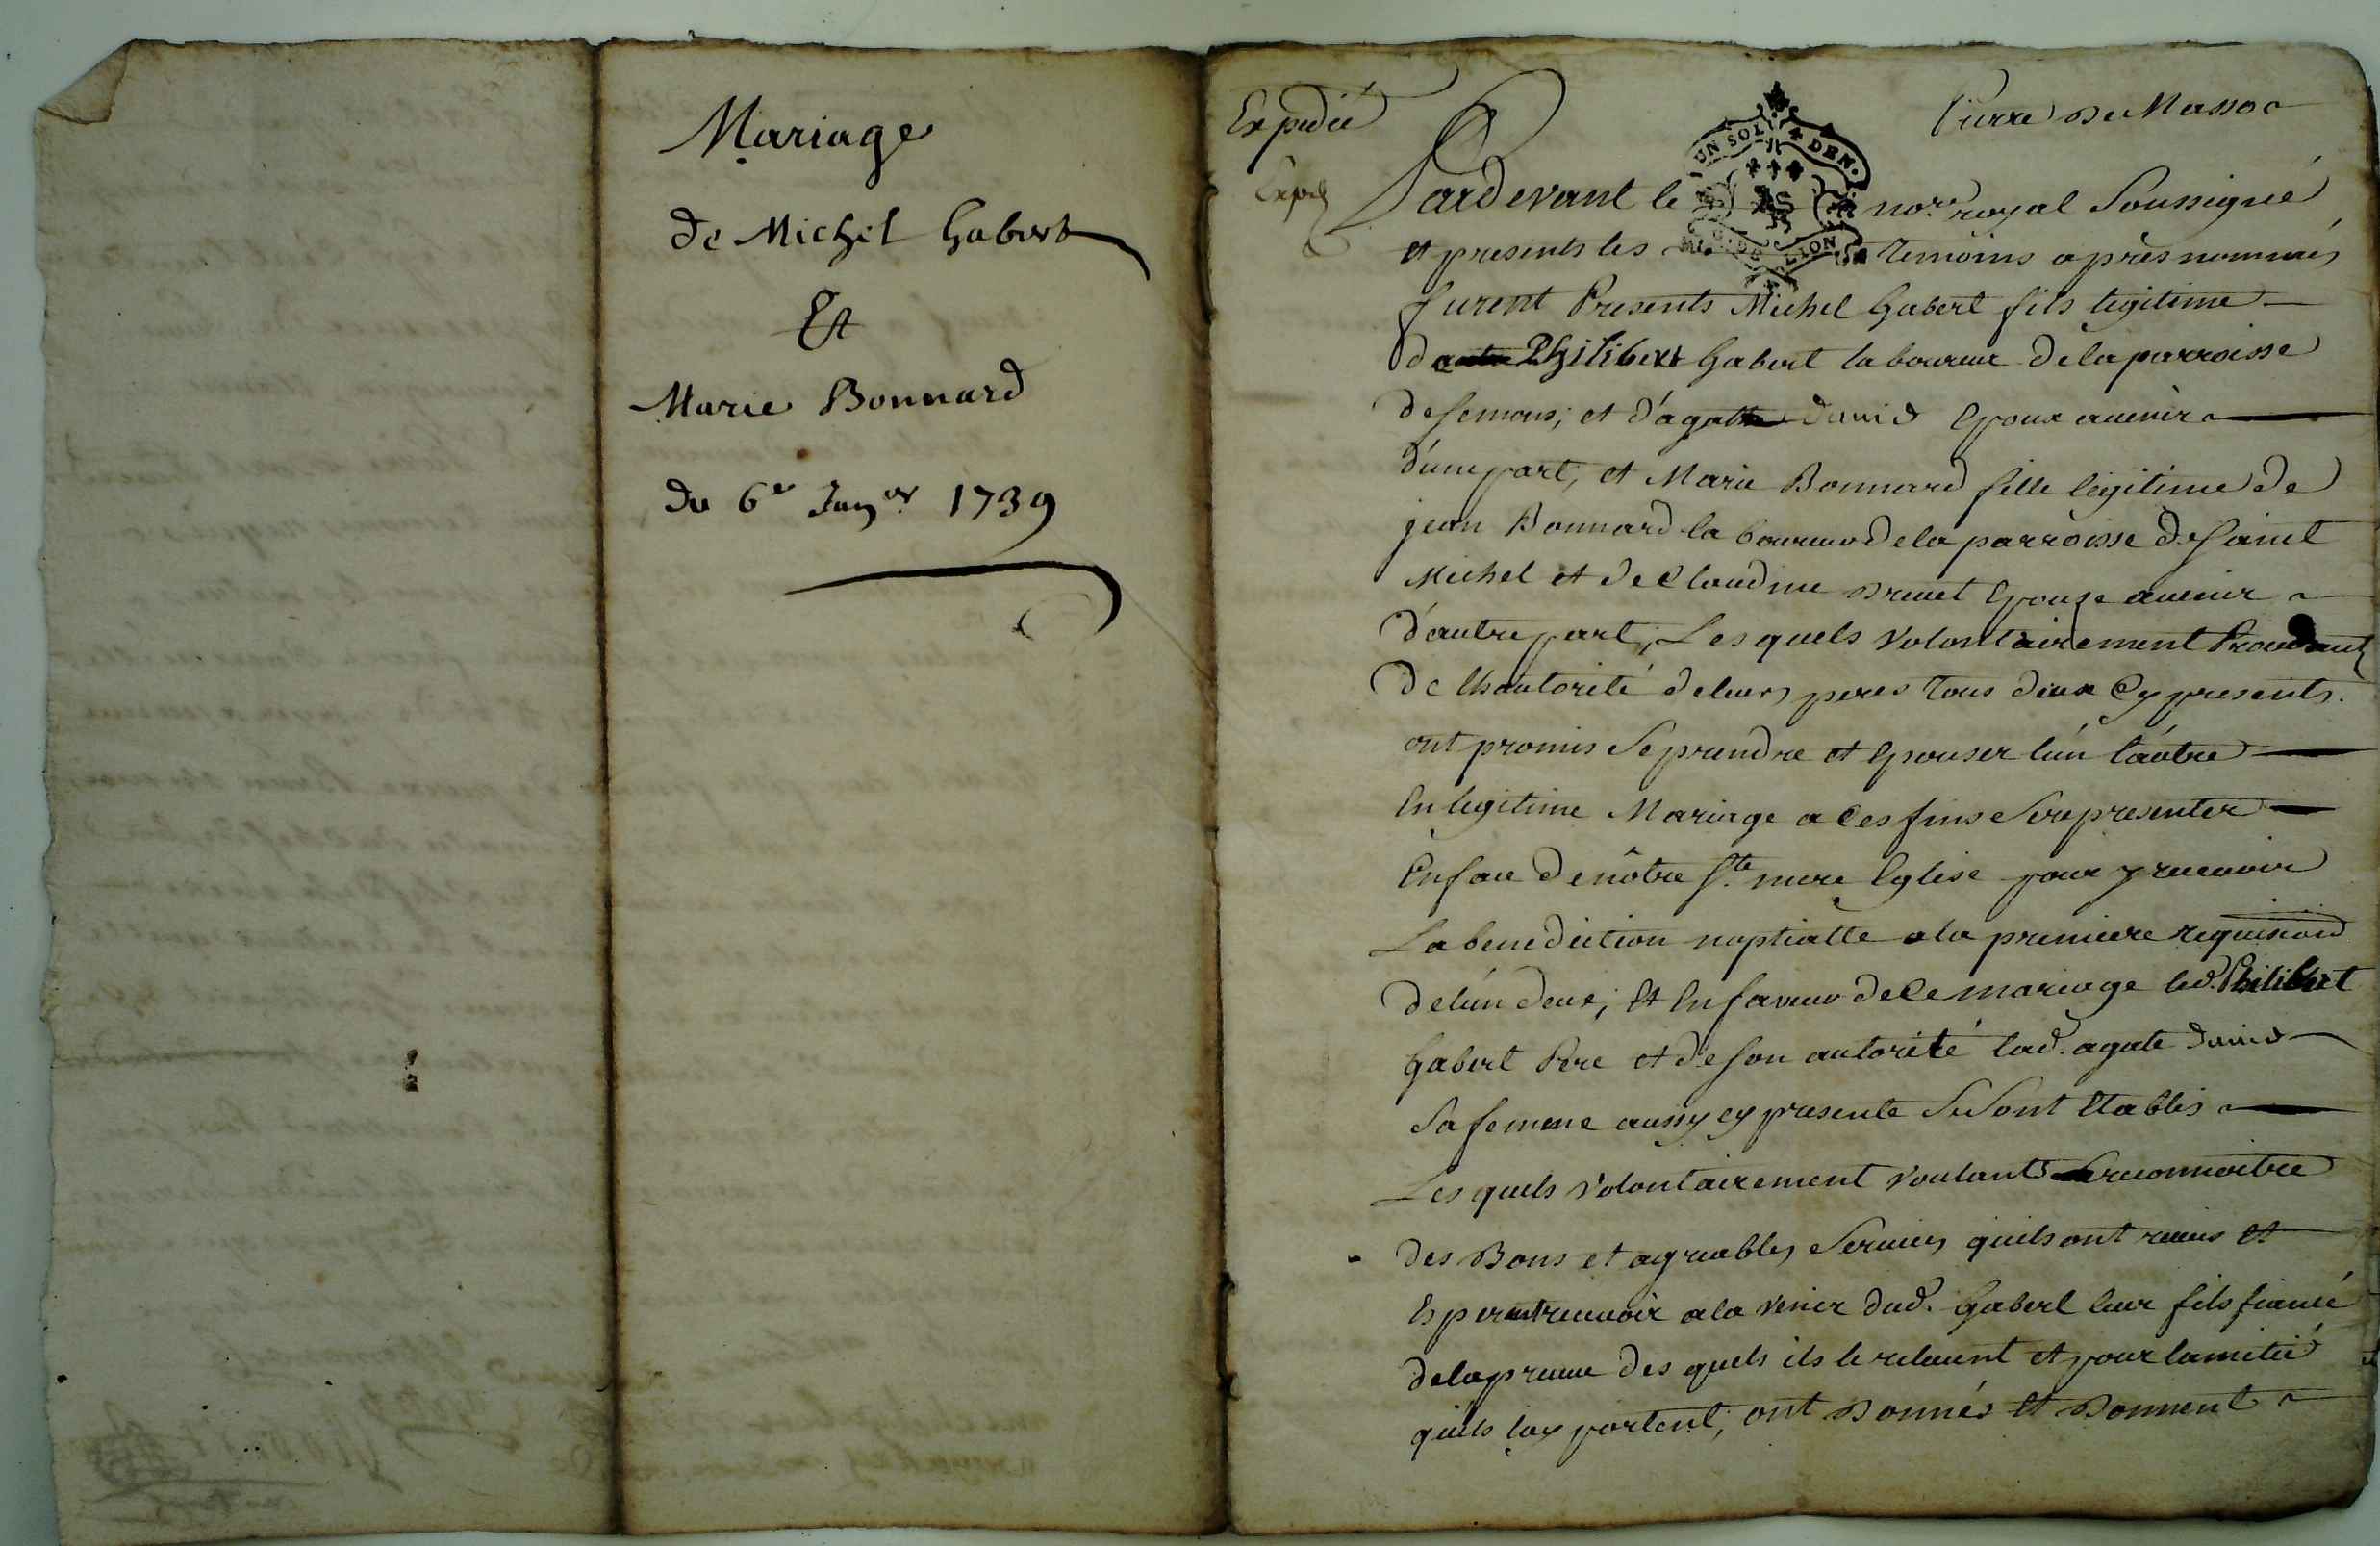 Mariage
de Michel Gabert
Et
Marie Bonnard
du 6e Janer 1739
Expedié
Pierre De Masso
Exped
UN SOL 4 DEN.
G. DE LION
Pardevant le nore royal Soussigné
et presents les temoins apres nommés
furent Presents Michel Gabert fils legitime
de Philibert Gabert laboureur de la parroisse
de semons; et d'agatte david Epoux avenir
d'une part, et Marie Bonnard fille légitime de
jean Bonnard laboureur de la parroisse de saint
Michel et de Claudine Drevet Epouze avenir
d'autre part, Les quels volontairement Procedants
de lhautorité de leurs peres tous deux Cy presents.
ont promis Se prendre et Epouser l'un l'autre
En legitime Mariage a Ces fins Se representer
En face de nôtre Ste mere Eglise pour y recevoir
La benediction nuptialle a la premiere requisiõn
de l'un deux; Et En faveur de Ce mariage led. Philibert
Gabert Pere et de son autorité lad. agate david
Sa femme aussy cy presente Se Sont Etablis
Les quels volontairement voulants reconnoitre
des Bons et agreables Services quils ont reçus et
Esperent recevoir a la venir dud. Gabert leur fils fiancé
de la preuve des quels ils le relevent et pour lamitié
quils luy portent, ont Donnés et Donnent